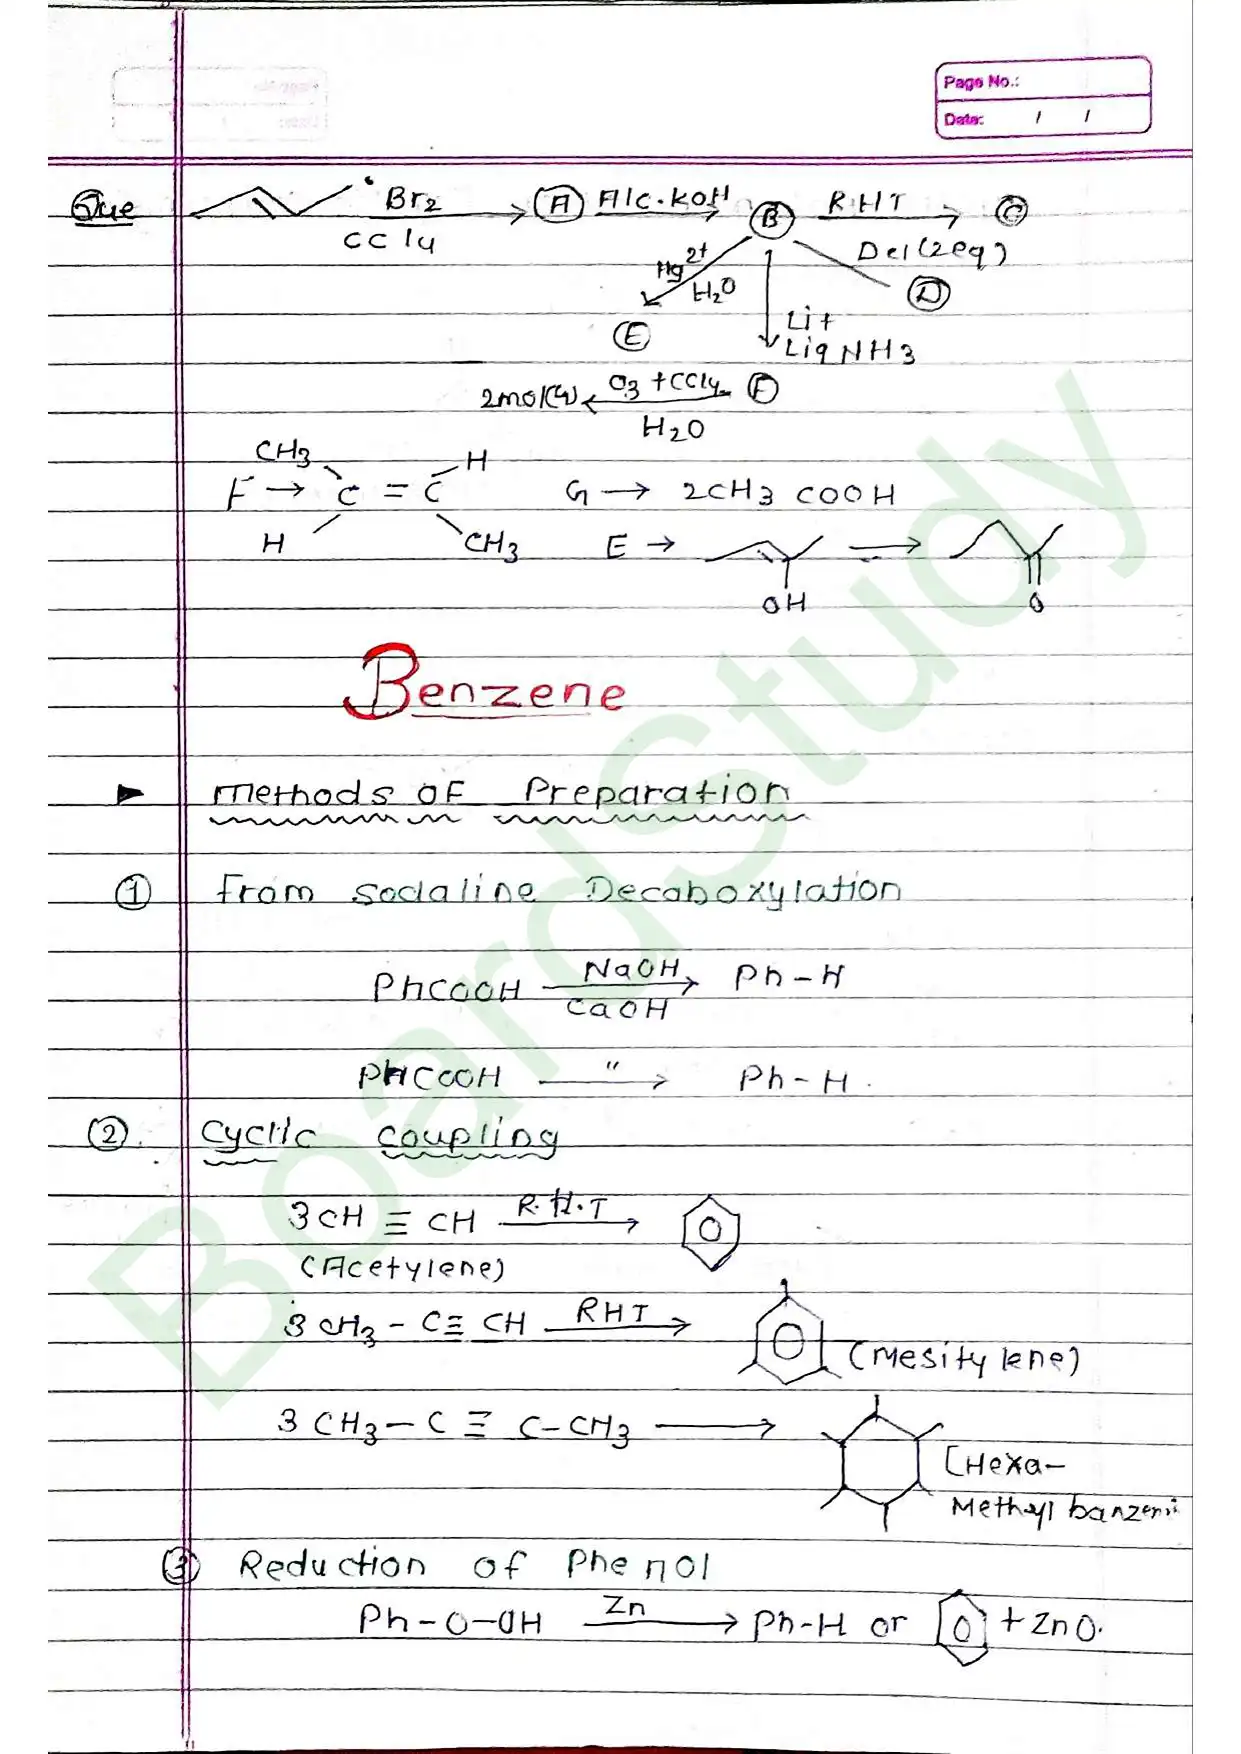 Page No.:
Date: / /
Que Br2 CCl4 → A Alc.KOH → B RHT → C
Hg2+ H2O DCl(2eq)
D
E Li+ LiqNH3
2mol(G) ← O3 +CCl4 H2O F
CH3 H
F → C = C G → 2CH3 COOH
H CH3 E → OH → O
Benzene
Methods of Preparation
① From Sodaline Decaboxylation
PhCOOH NaOH CaOH → Ph-H
PhCOOH " → Ph-H.
②. Cyclic coupling
3CH ≡ CH R.H.T →
(Acetylene)
3 CH3 - C ≡ CH RHT → (Mesitylene)
3 CH3 - C ≡ C-CH3 → (Hexa-
Methyl banzene
③ Reduction of Phenol
Ph-O-OH Zn → Ph-H or + ZnO.
BoardStudy